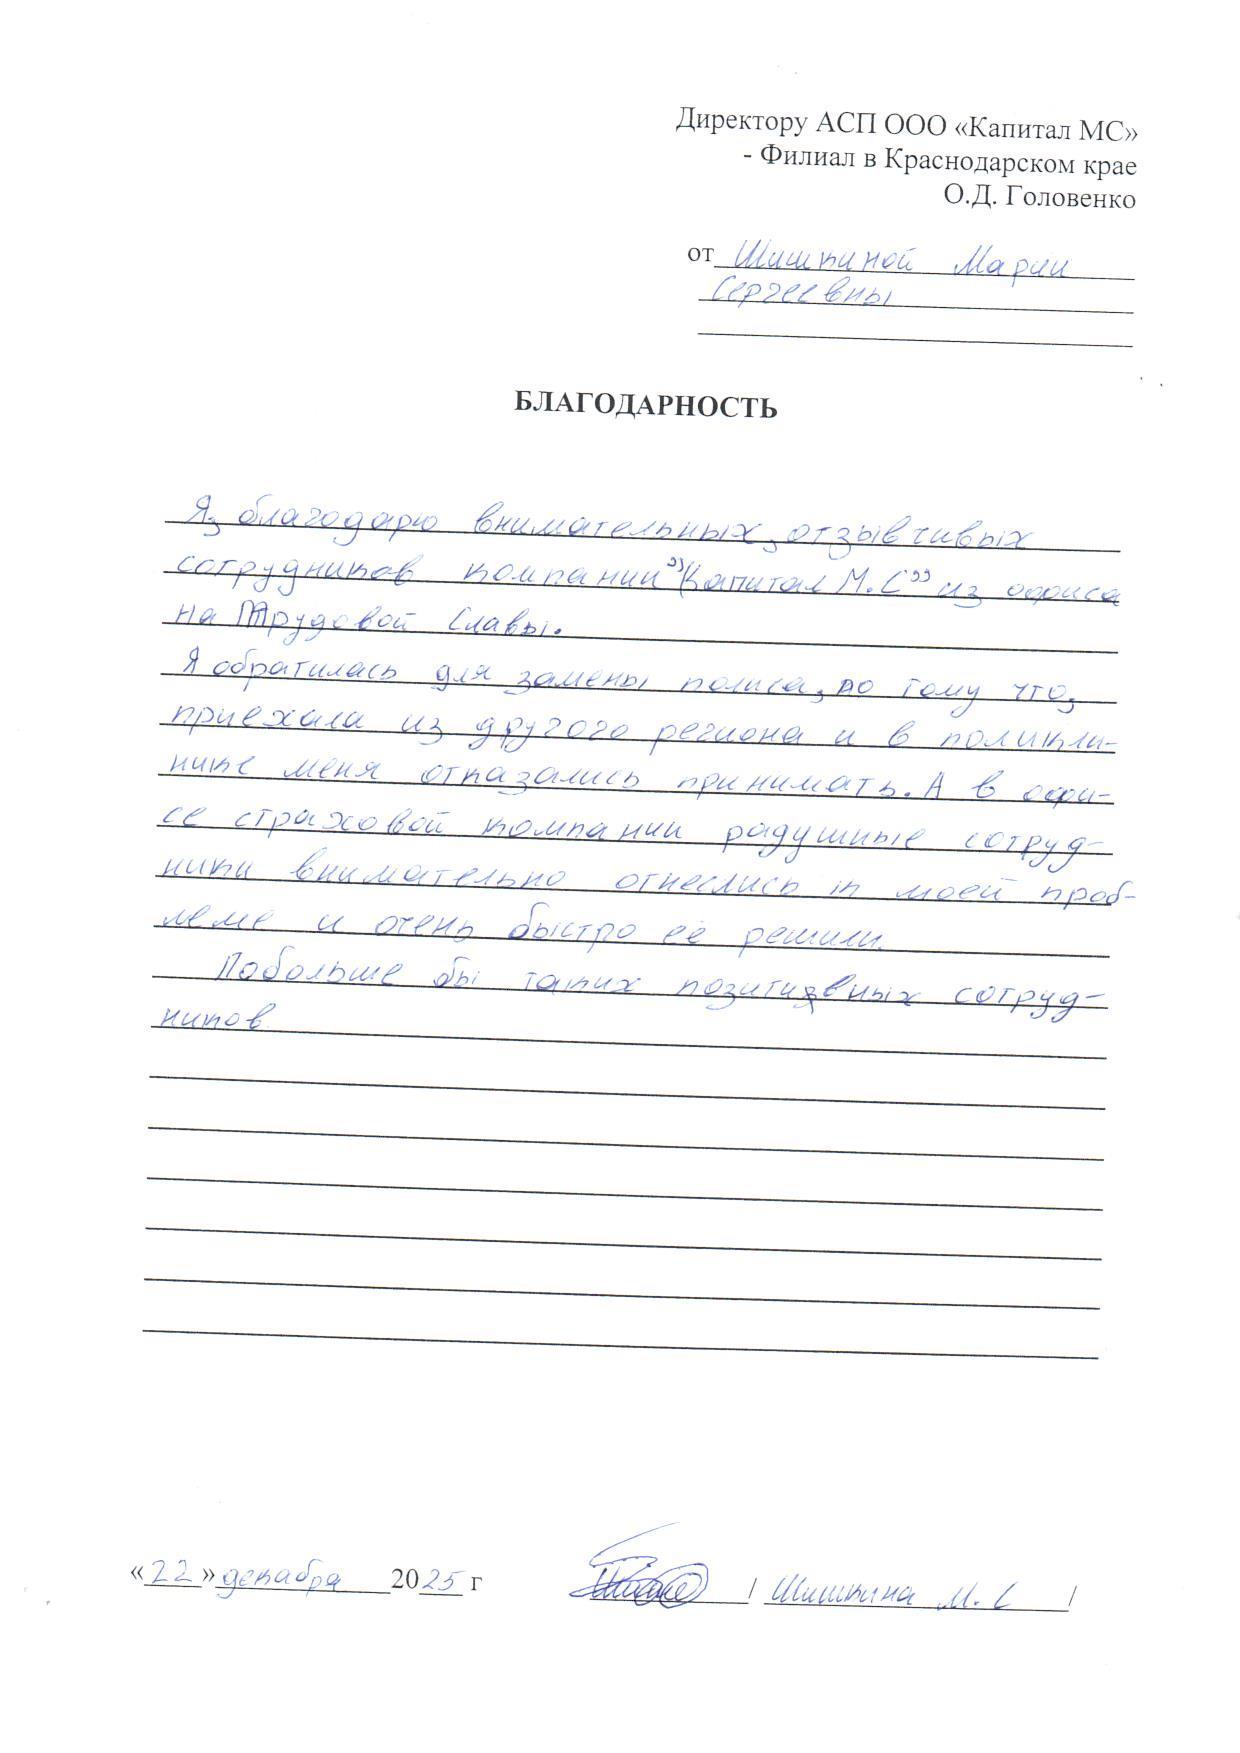 Директору АСП ООО «Капитал МС»
- Филиал в Краснодарском крае
О.Д. Головенко
от Шишкиной Марии
Сергеевны
БЛАГОДАРНОСТЬ
Я, благодарю внимательных, отзывчивых
сотрудников компании "Капитал М.С" из офиса
на Трудовой Славы.
Я обратилась для замены полиса, по тому что,
приехала из другого региона и в поликли-
нике меня отказались принимать. А в офи-
се страховой компании радушные сотруд-
ники внимательно отнеслись к моей проб-
леме и очень быстро её решили.
Побольше бы таких позитивных сотруд-
ников
«22» декабря 2025 г / Шишкина М. С /